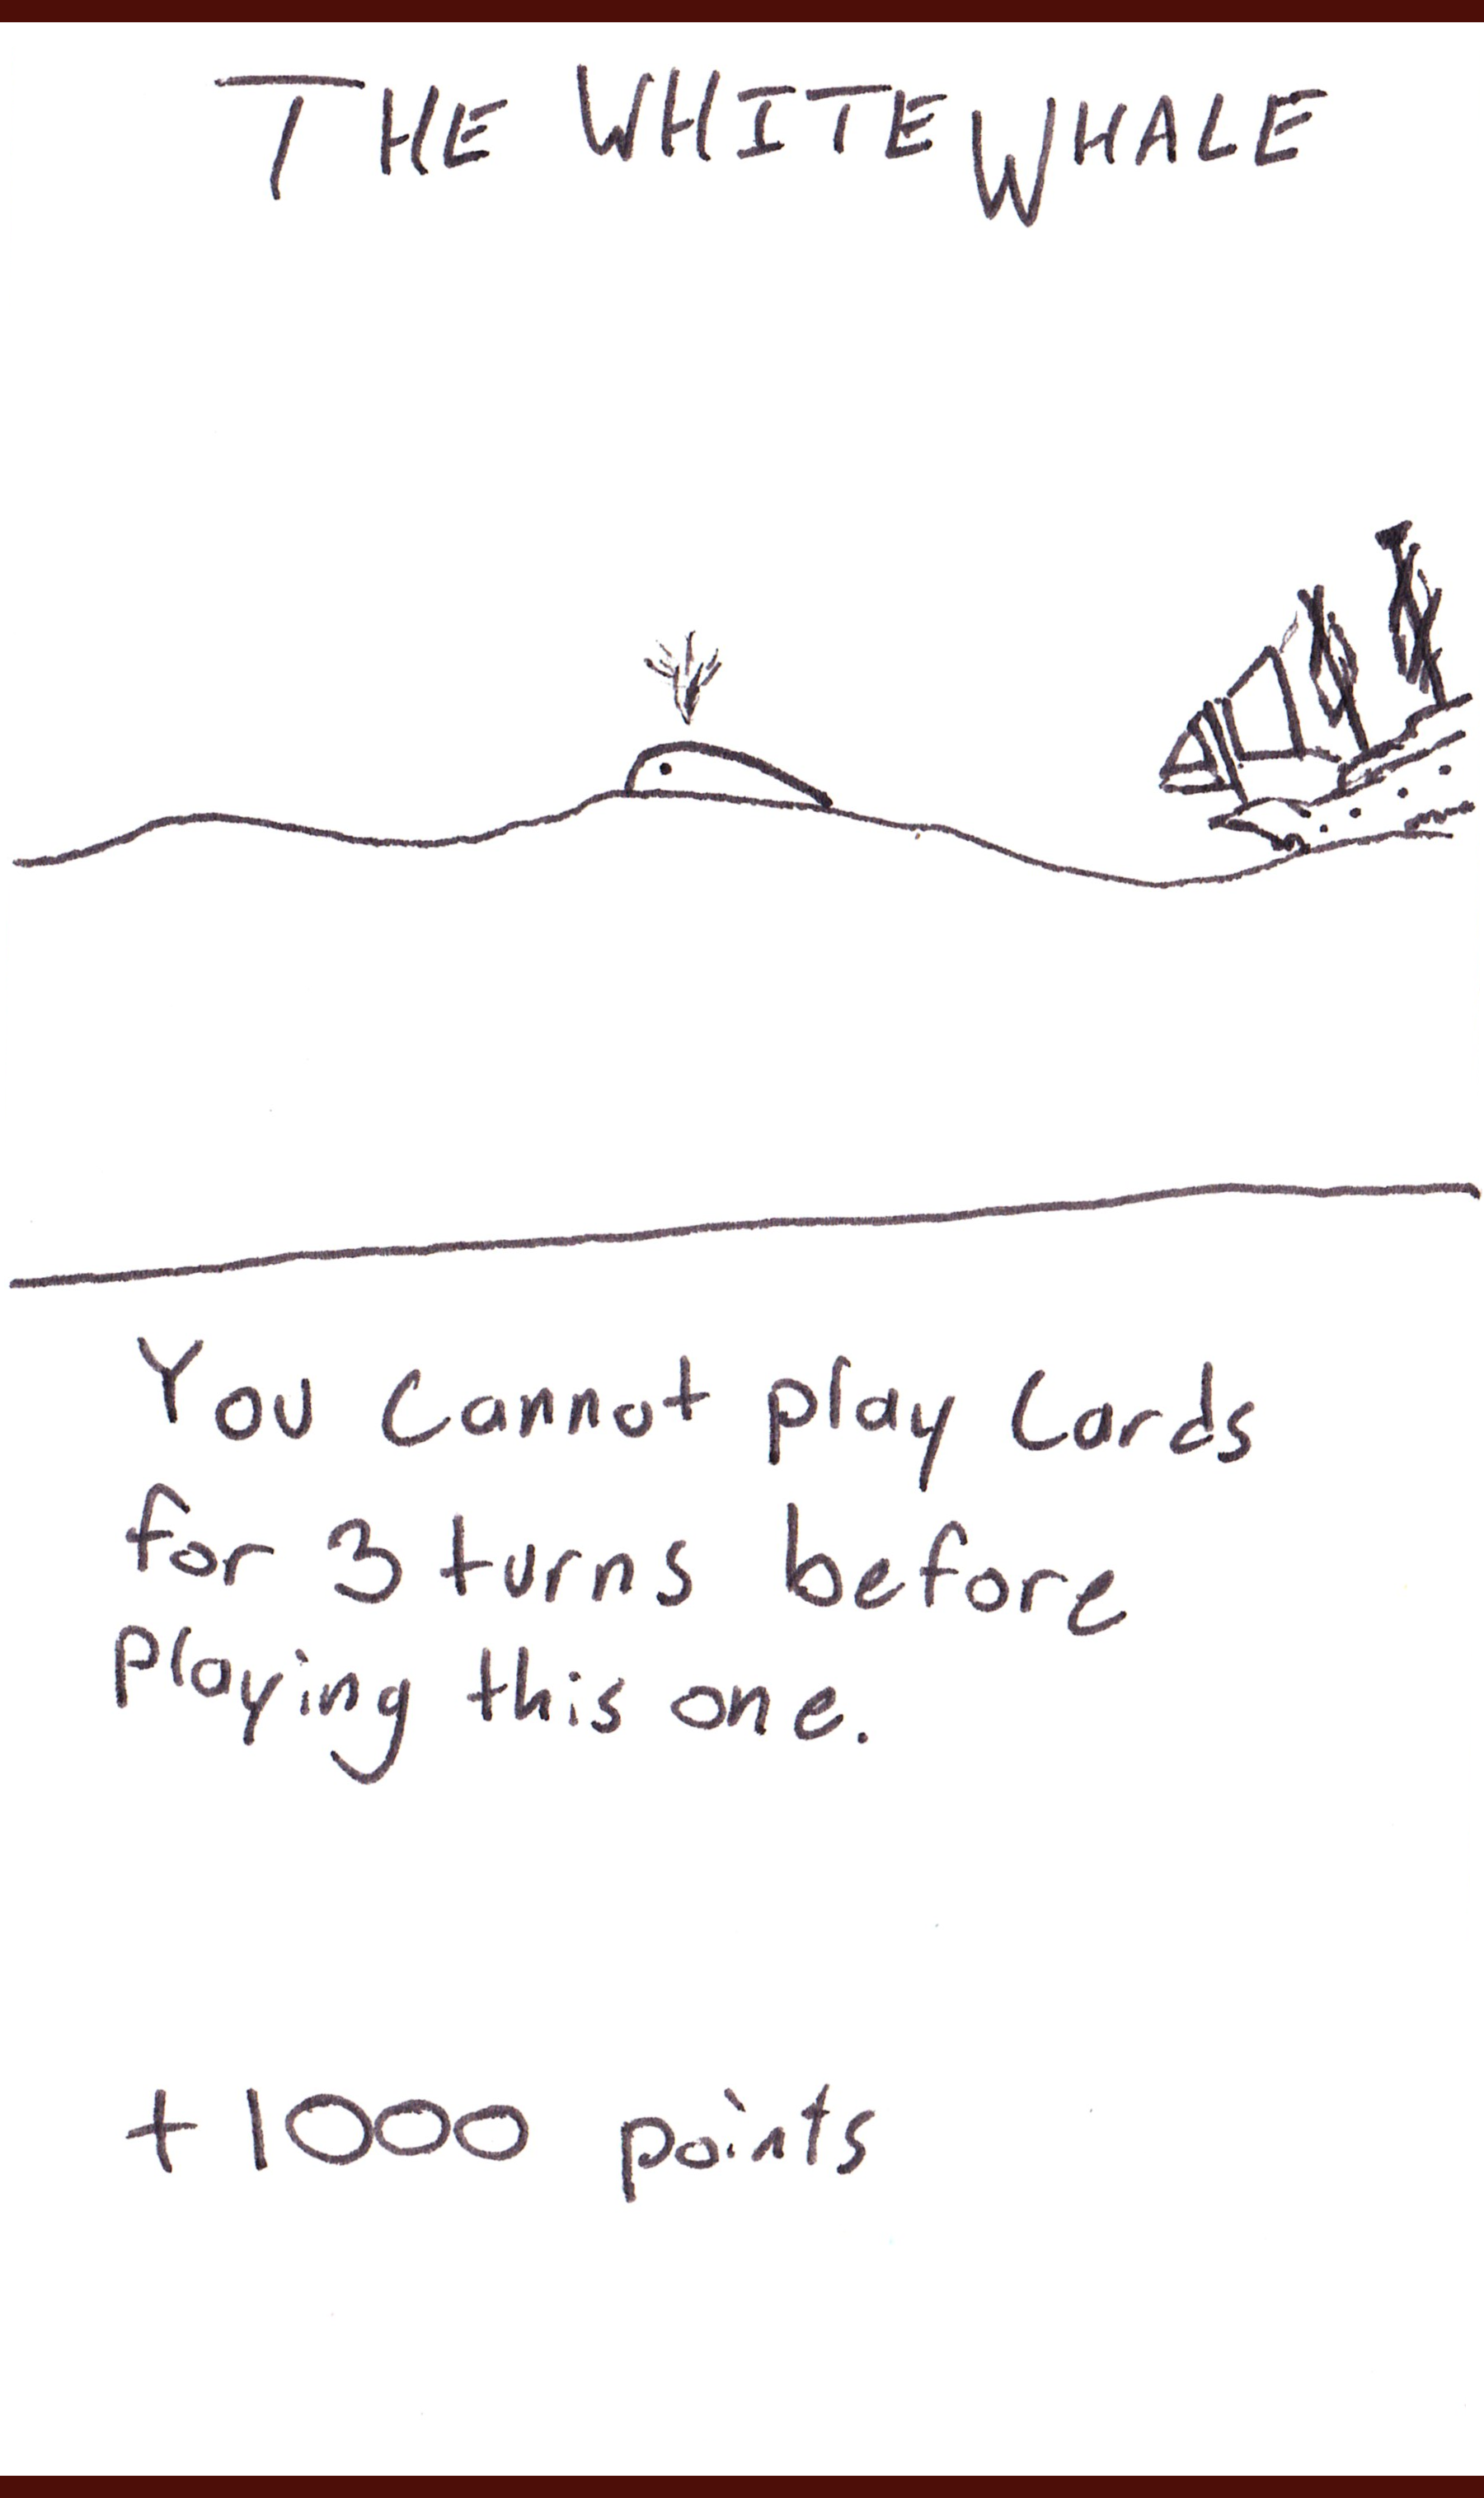 THE WHITE WHALE
You cannot play cards
for 3 turns before
playing this one.
+1000 points